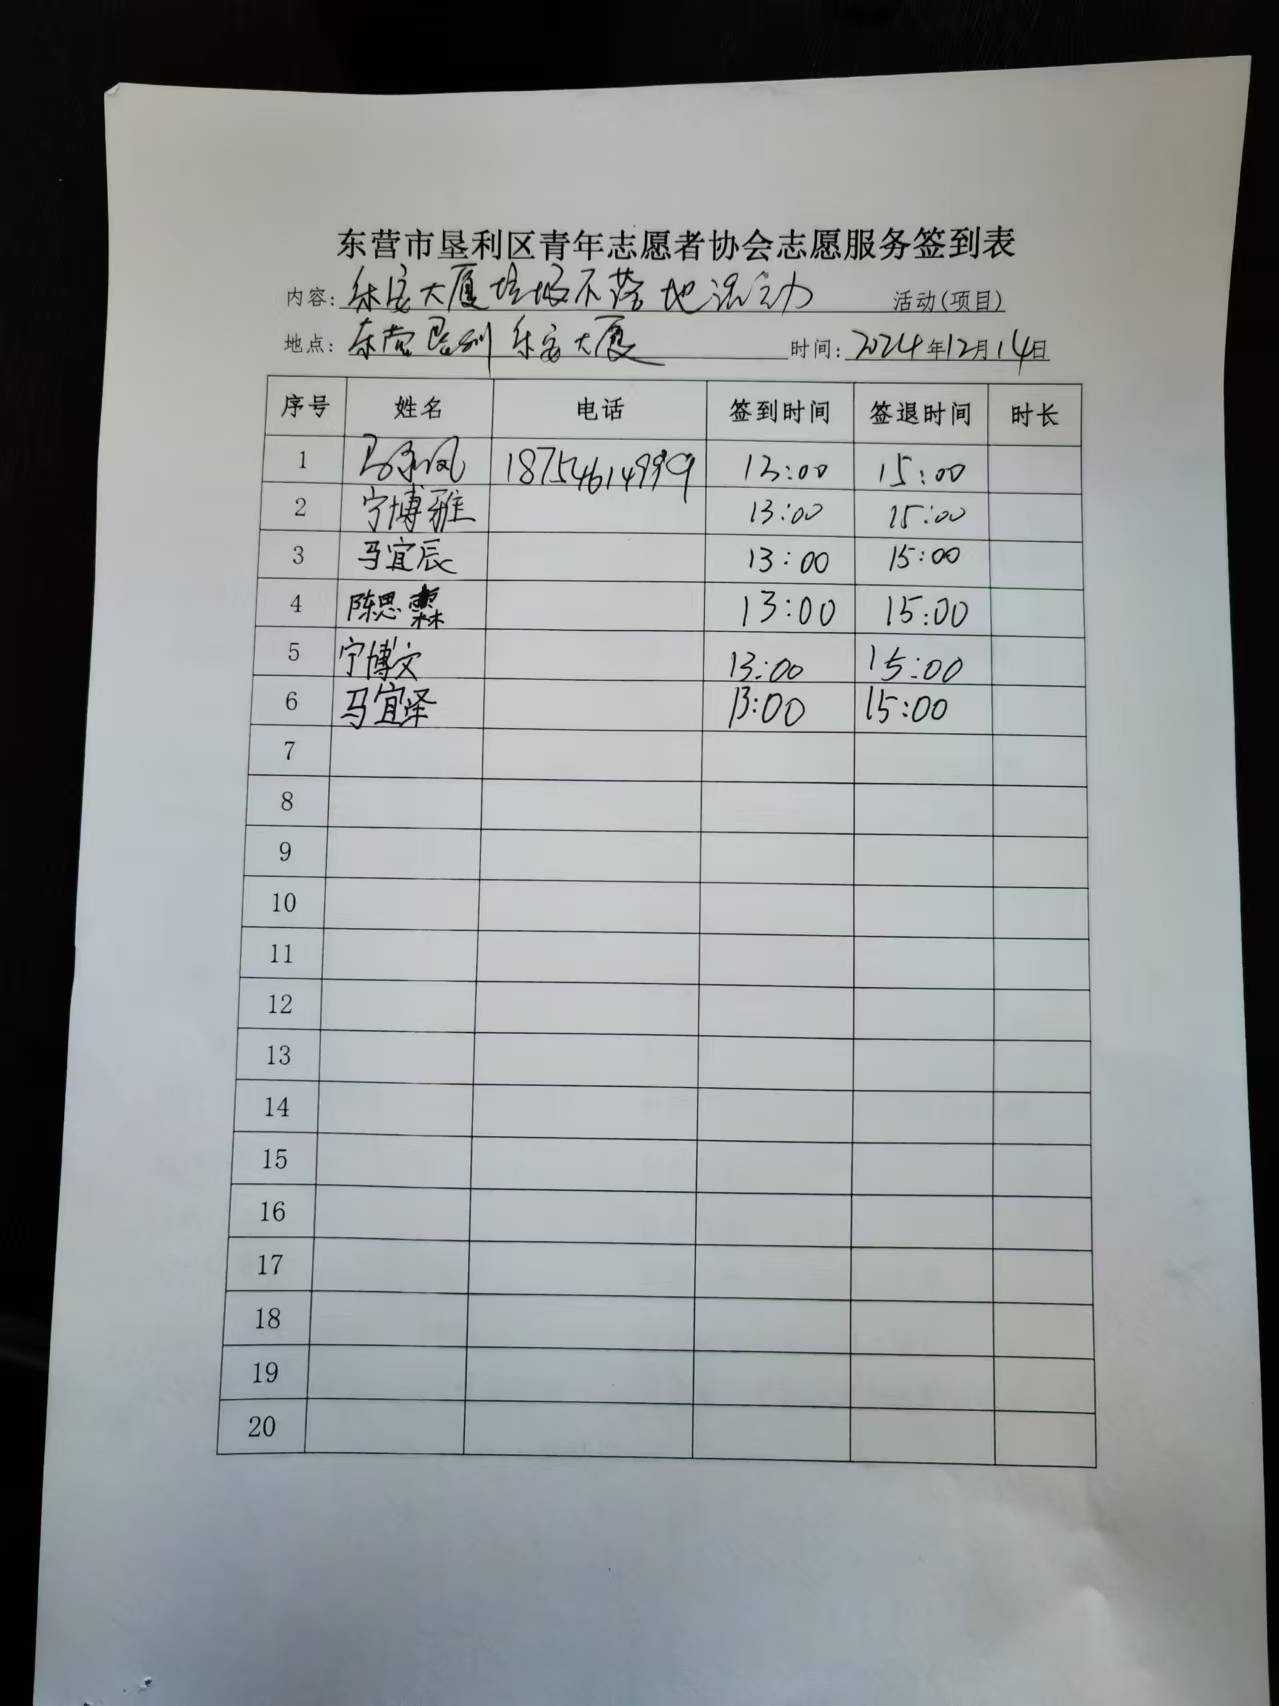 东营市垦利区青年志愿者协会志愿服务签到表
内容: 乐安大厦垃圾不落地活动 活动(项目)
地点: 东营垦利乐安大厦 时间: 2024年12月14日
序号 姓名 电话 签到时间 签退时间 时长
1 马 凤 18754614999 13:00 15:00
2 宁博雅 13:00 15:00
3 马宜辰 13:00 15:00
4 陈思霖 13:00 15:00
5 宁博文 13:00 15:00
6 马宜泽 13:00 15:00
7
8
9
10
11
12
13
14
15
16
17
18
19
20